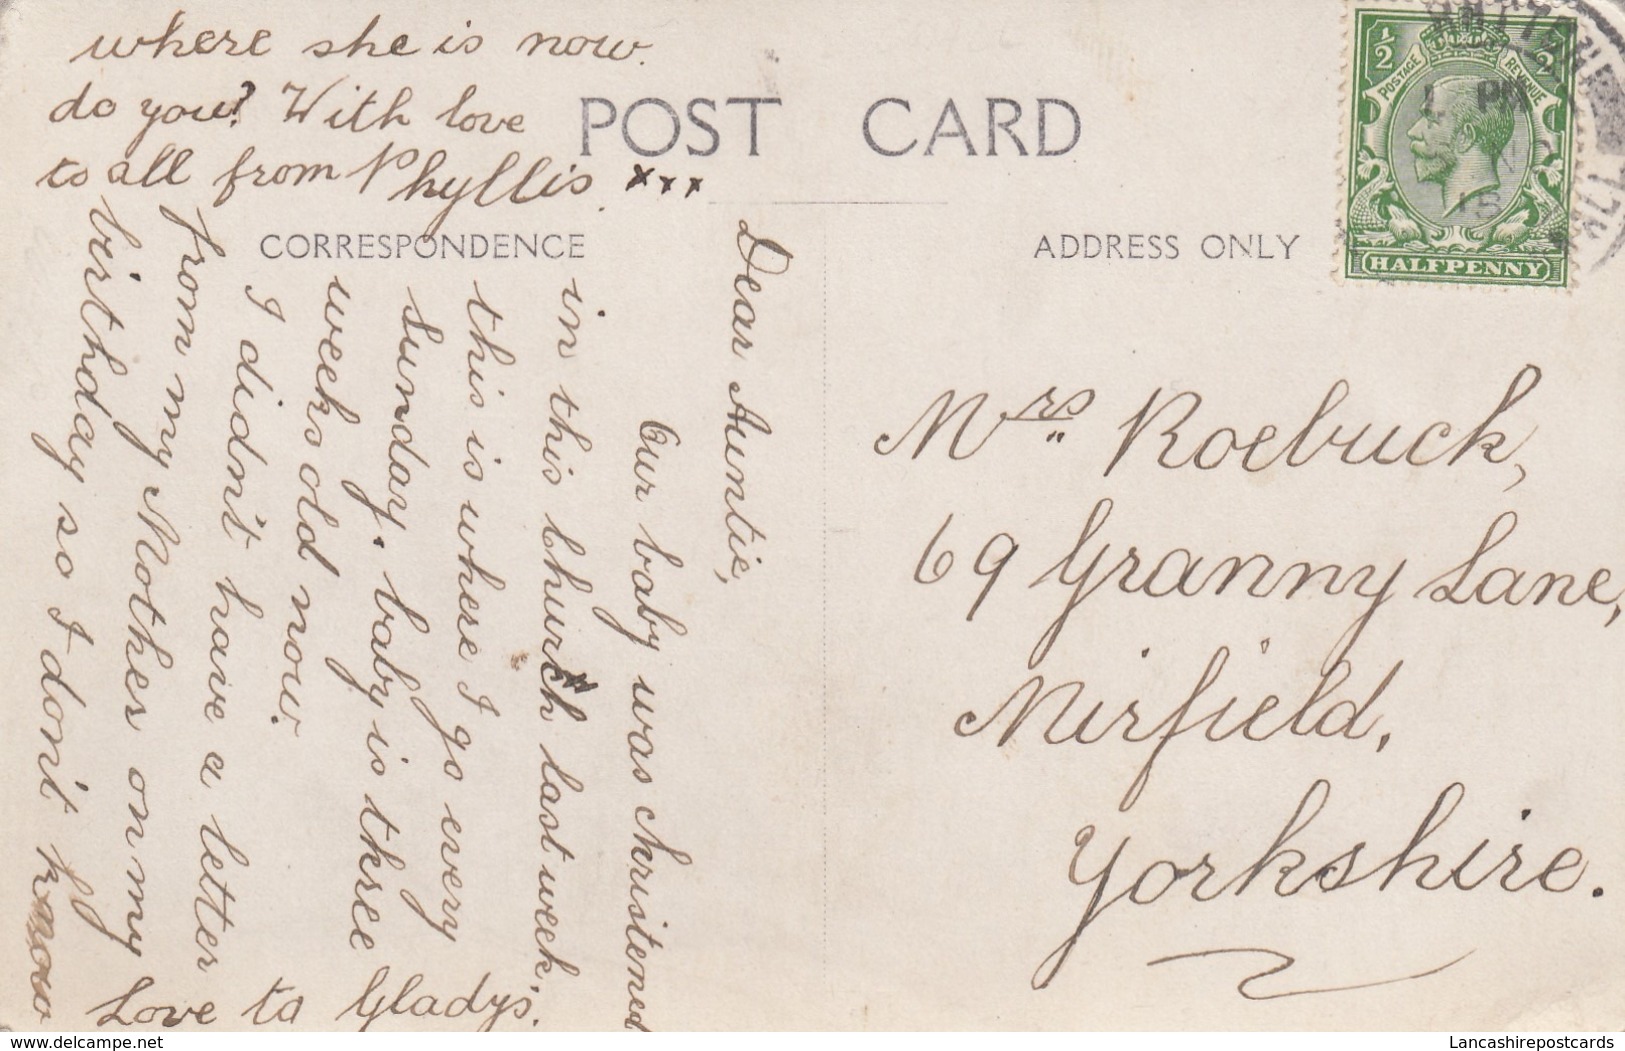 POST CARD
CORRESPONDENCE
ADDRESS ONLY
Dear Auntie,
Our baby was christened
in this church last week.
this is where I go every
Sunday. baby is three
weeks old now.
I didn't have a letter
from my Mother on my
birthday so I don't know
where she is now.
do you? With love
to all from Phyllis. xxx
Love to Gladys.
Mrs. Roebuck,
69 Granny Lane,
Mirfield,
Yorkshire.
½ ½
POSTAGE REVENUE
HALFPENNY
1 PM
18
www.delcampe.net
Lancashirepostcards